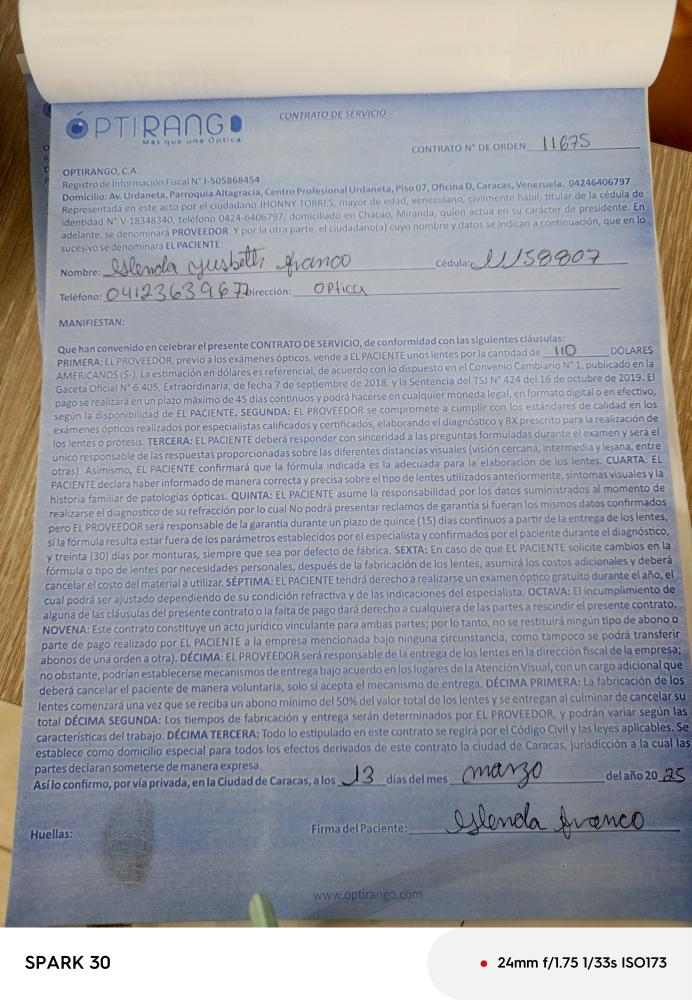 ÓPTIRANGO
Más que una Óptica
CONTRATO DE SERVICIO
CONTRATO N° DE ORDEN 11675
OPTIRANGO, C.A.
Registro de Información Fiscal N° J-505868454
Domicilio: Av. Urdaneta, Parroquia Altagracia, Centro Profesional Urdaneta, Piso 07, Oficina D, Caracas, Venezuela. 04246406797
Representada en este acto por el ciudadano JHONNY TORRES, mayor de edad, venezolano, civilmente hábil, titular de la cédula de
identidad N° V-18348340, teléfono 0424-6406797, domiciliado en Chacao, Miranda, quien actúa en su carácter de presidente. En
adelante, se denominará PROVEEDOR. Y por la otra parte, el ciudadano(a) cuyo nombre y datos se indican a continuación, que en lo
sucesivo se denominará EL PACIENTE:
Nombre: Glenda yusbeth franco Cédula: 11158807
Teléfono: 04123639677 Dirección: OPtica
MANIFIESTAN:
Que han convenido en celebrar el presente CONTRATO DE SERVICIO, de conformidad con las siguientes cláusulas:
PRIMERA: EL PROVEEDOR, previo a los exámenes ópticos, vende a EL PACIENTE unos lentes por la cantidad de 110 DÓLARES
AMERICANOS (S-). La estimación en dólares es referencial, de acuerdo con lo dispuesto en el Convenio Cambiario N° 1, publicado en la
Gaceta Oficial N° 6.405, Extraordinaria, de fecha 7 de septiembre de 2018, y la Sentencia del TSJ N° 424 del 16 de octubre de 2019. El
pago se realizará en un plazo máximo de 45 días continuos y podrá hacerse en cualquier moneda legal, en formato digital o en efectivo,
según la disponibilidad de EL PACIENTE. SEGUNDA: EL PROVEEDOR se compromete a cumplir con los estándares de calidad en los
exámenes ópticos realizados por especialistas calificados y certificados, elaborando el diagnóstico y RX prescrito para la realización de
los lentes o prótesis. TERCERA: EL PACIENTE deberá responder con sinceridad a las preguntas formuladas durante el examen y será el
único responsable de las respuestas proporcionadas sobre las diferentes distancias visuales (visión cercana, intermedia y lejana, entre
otras). Asimismo, EL PACIENTE confirmará que la fórmula indicada es la adecuada para la elaboración de los lentes. CUARTA: EL
PACIENTE declara haber informado de manera correcta y precisa sobre el tipo de lentes utilizados anteriormente, síntomas visuales y la
historia familiar de patologías ópticas. QUINTA: EL PACIENTE asume la responsabilidad por los datos suministrados al momento de
realizarse el diagnostico de su refracción por lo cual No podrá presentar reclamos de garantía si fueran los mismos datos confirmados
pero EL PROVEEDOR será responsable de la garantía durante un plazo de quince (15) días continuos a partir de la entrega de los lentes,
si la fórmula resulta estar fuera de los parámetros establecidos por el especialista y confirmados por el paciente durante el diagnóstico,
y treinta (30) días por monturas, siempre que sea por defecto de fábrica. SEXTA: En caso de que EL PACIENTE solicite cambios en la
fórmula o tipo de lentes por necesidades personales, después de la fabricación de los lentes, asumirá los costos adicionales y deberá
cancelar el costo del material a utilizar. SÉPTIMA: EL PACIENTE tendrá derecho a realizarse un examen óptico gratuito durante el año, el
cual podrá ser ajustado dependiendo de su condición refractiva y de las indicaciones del especialista. OCTAVA: El incumplimiento de
alguna de las cláusulas del presente contrato o la falta de pago dará derecho a cualquiera de las partes a rescindir el presente contrato.
NOVENA: Este contrato constituye un acto jurídico vinculante para ambas partes; por lo tanto, no se restituirá ningún tipo de abono o
parte de pago realizado por EL PACIENTE a la empresa mencionada bajo ninguna circunstancia, como tampoco se podrá transferir
abonos de una orden a otra). DÉCIMA: EL PROVEEDOR será responsable de la entrega de los lentes en la dirección fiscal de la empresa;
no obstante, podrían establecerse mecanismos de entrega bajo acuerdo en los lugares de la Atención Visual, con un cargo adicional que
deberá cancelar el paciente de manera voluntaria, solo si acepta el mecanismo de entrega. DÉCIMA PRIMERA: La fabricación de los
lentes comenzará una vez que se reciba un abono mínimo del 50% del valor total de los lentes y se entregan al culminar de cancelar su
total DÉCIMA SEGUNDA: Los tiempos de fabricación y entrega serán determinados por EL PROVEEDOR, y podrán variar según las
características del trabajo. DÉCIMA TERCERA: Todo lo estipulado en este contrato se regirá por el Código Civil y las leyes aplicables. Se
establece como domicilio especial para todos los efectos derivados de este contrato la ciudad de Caracas, jurisdicción a la cual las
partes declaran someterse de manera expresa.
Así lo confirmo, por vía privada, en la Ciudad de Caracas, a los 13 días del mes marzo del año 20 25
Huellas: Firma del Paciente: Glenda franco
www.optirango.com
SPARK 30
24mm f/1.75 1/33s ISO173